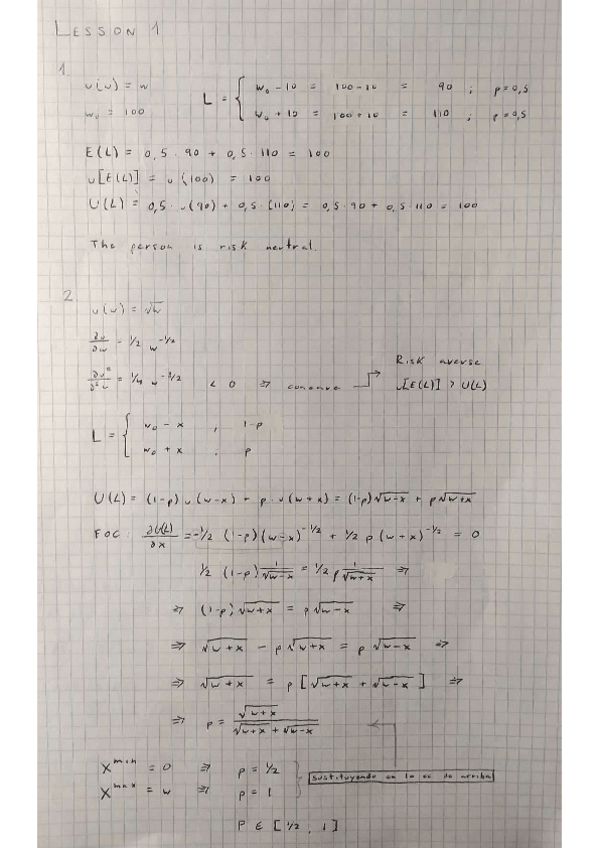 LESSON 1
1.
u(w) = w
w₀ = 100
L = { w₀ - 10 = 100 - 10 = 90 ; p = 0,5
w₀ + 10 = 100 + 10 = 110 ; p = 0,5
E(L) = 0,5 · 90 + 0,5 · 110 = 100
u[E(L)] = u(100) = 100
U(L) = 0,5 · u(90) + 0,5 · (110) = 0,5 · 90 + 0,5 · 110 = 100
The person is risk neutral.
2.
u(w) = √w
∂u/∂w = 1/2 w^-1/2
∂u²/∂²w = 1/4 w^-3/2 < 0 ⇒ concave → Risk averse
u[E(L)] > U(L)
L = { w₀ - x , 1-p
w₀ + x , p
U(L) = (1-p) u(w-x) + p · u(w+x) = (1-p)√w-x + p√w+x
FOC: ∂U(L)/∂x = -1/2 (1-p)(w-x)^-1/2 + 1/2 p (w+x)^-1/2 = 0
1/2 (1-p) 1/√w-x = 1/2 p 1/√w+x ⇒
⇒ (1-p)√w+x = p√w-x ⇒
⇒ √w+x - p√w+x = p√w-x ⇒
⇒ √w+x = p[√w+x + √w-x] ⇒
⇒ p = √w+x / √w+x + √w-x
X^min = 0 ⇒ p = 1/2
X^max = w ⇒ p = 1
sustituyendo en la ec de arriba
P ∈ [1/2, 1]